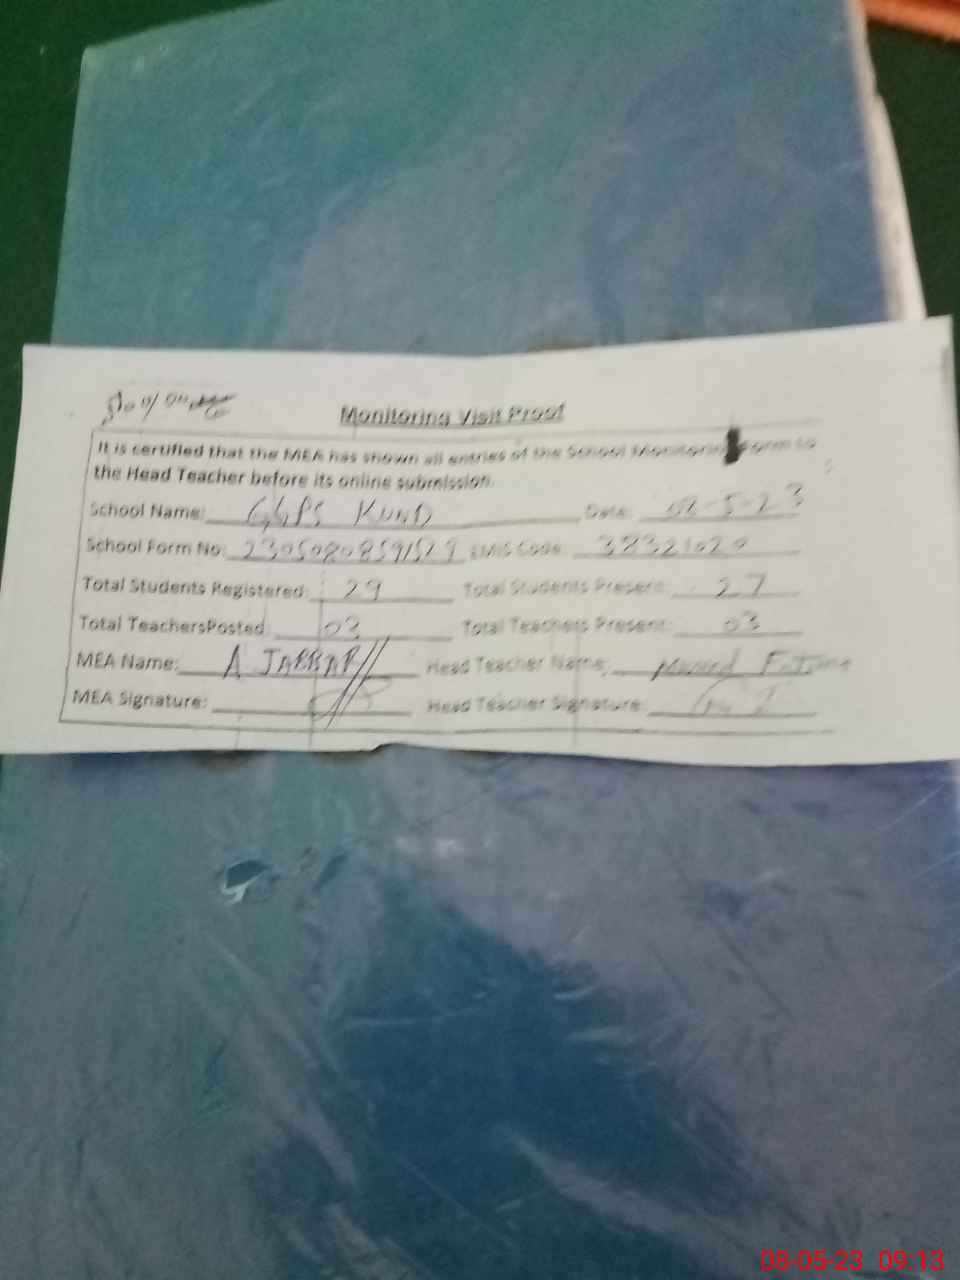 Monitoring Visit Proof
It is certified that the MEA has shown all entries of the School Monitoring Form to
the Head Teacher before its online submission.
School Name: GGPS KUND Date: 08-5-23
School Form No: 23050808591529 EMIS Code: 38321020
Total Students Registered: 29 Total Students Present: 27
Total TeachersPosted: 03 Total Teachers Present: 03
MEA Name: A JABBAR Head Teacher Name:
MEA Signature: Head Teacher Signature:
08-05-23 09:13